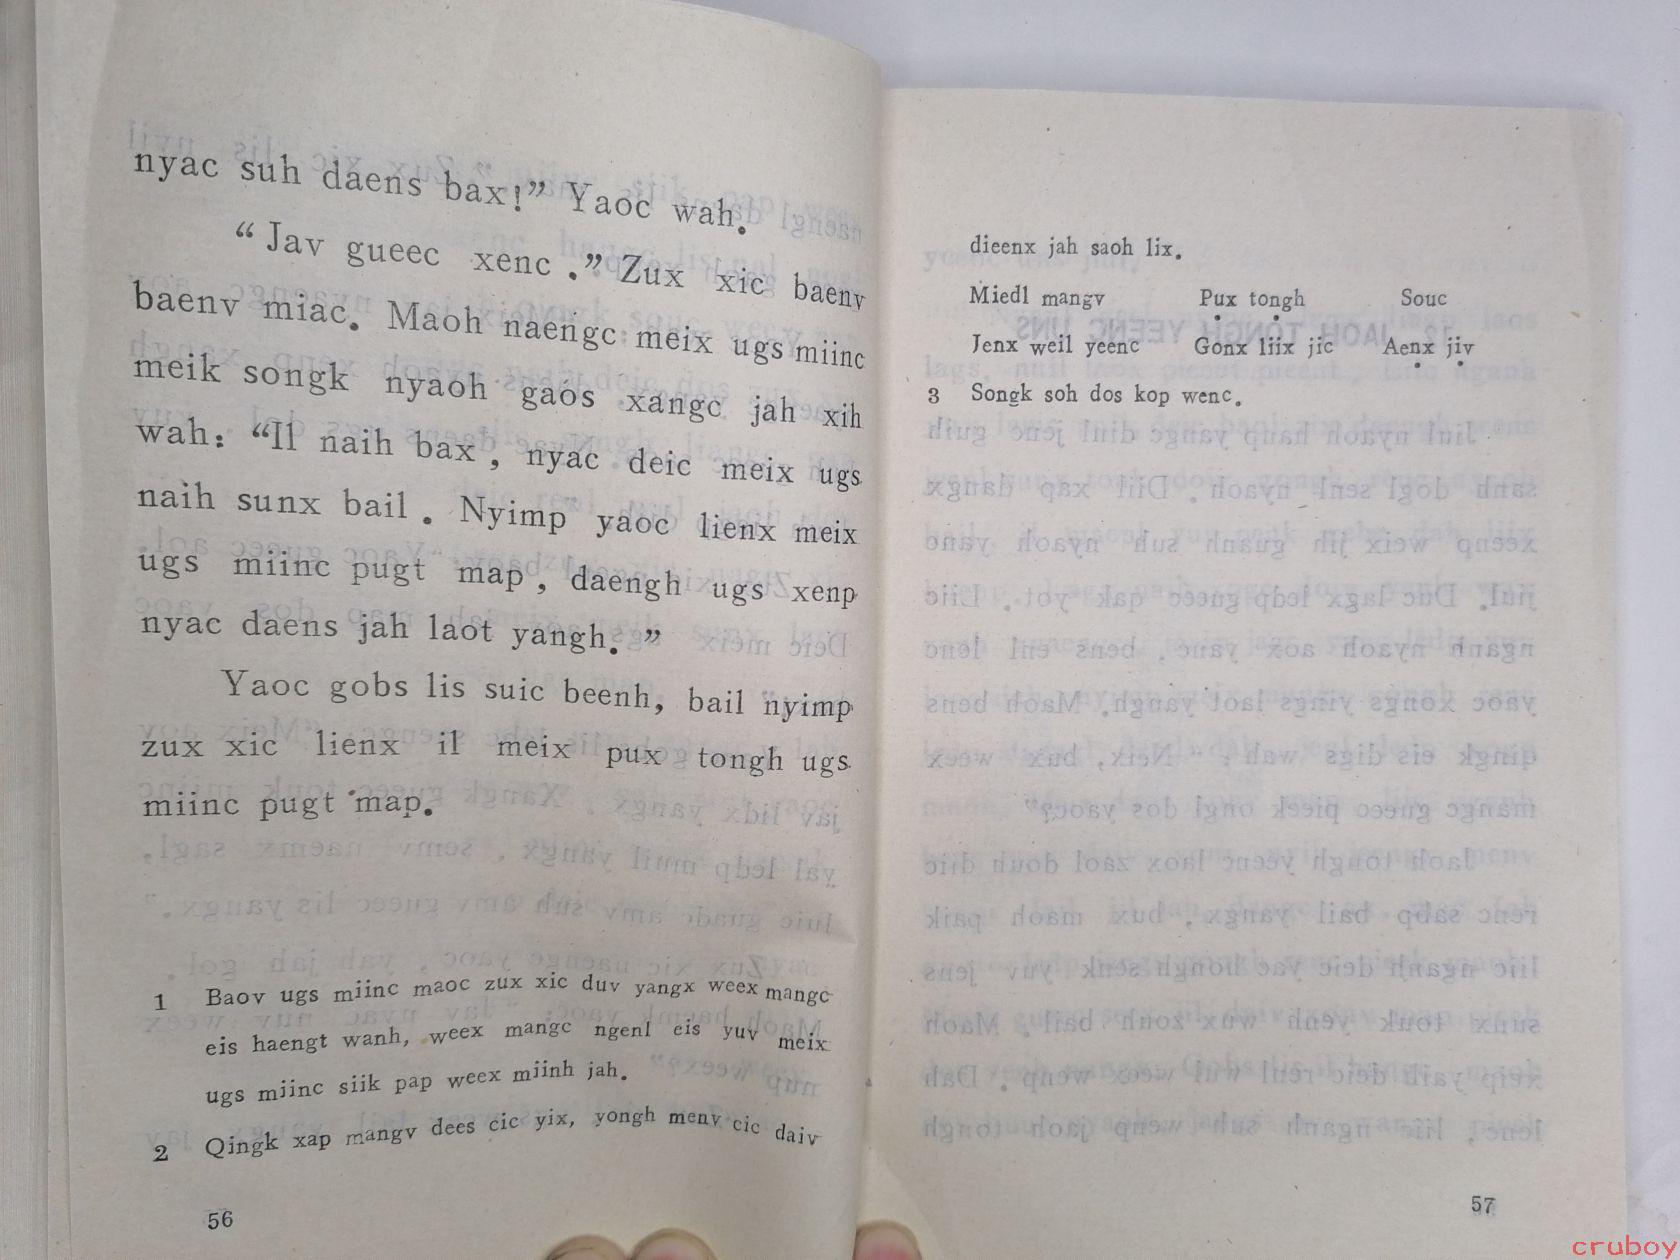 nyac suh daens bax!” Yaoc wah.
“Jav gueec xenc.” Zux xic baenv
baenv miac. Maoh naengc meix ugs miinc
meik songk nyaoh gaos xangc jah xih
wah: “Il naih bax, nyac deic meix ugs
naih sunx bail. Nyimp yaoc lienx meix
ugs miinc pugt map, daengh ugs xenp
nyac daens jah laot yangh.”
Yaoc gobs lis suic beenh, bail nyimp
zux xic lienx il meix pux tongh ugs
miinc pugt map.
1 Baov ugs miinc maoc zux xic duv yangx weex mangc
eis haengt wanh, weex mangc ngenl eis yuv meix
ugs miinc siik pap weex miinh jah.
2 Qingk xap mangv dees cic yix, yongh menv cic daiv
56
dieenx jah saoh lix.
Miedl mangv Pux tongh Souc
Jenx weil yeenc Gonx liix jic Aenx jiv
3 Songk soh dos kop wenc.
57
cruboy